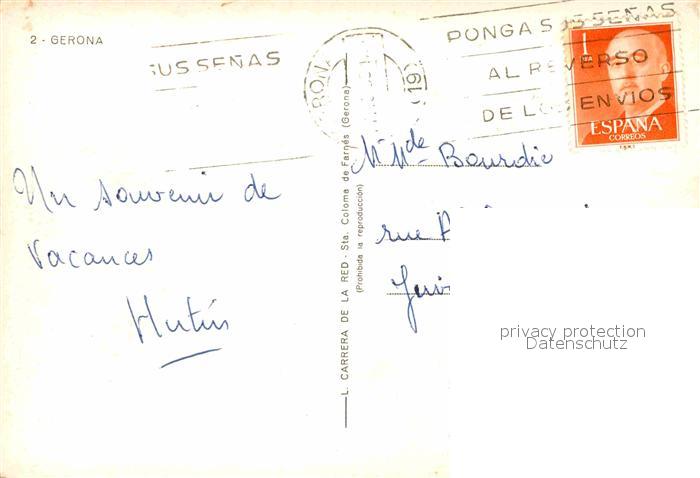 2 - GERONA
SUS SEÑAS
PONGA SUS SEÑAS
AL REVERSO
DE LOS ENVIOS
1
ESPAÑA
CORREOS
L. CARRERA DE LA RED - Sta. Coloma de Farnés (Gerona)
(Prohibida la reproducción)
Un souvenir de
vacances
M Mde Bourdie
rue
privacy protection
Datenschutz